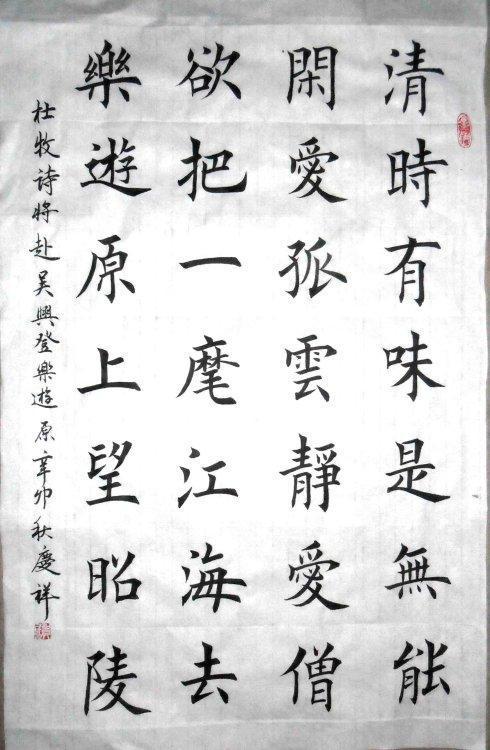 清時有味是無能
閑愛孤雲靜愛僧
欲把一麾江海去
樂遊原上望昭陵
杜牧詩將赴吳興登樂遊原辛卯秋慶祥